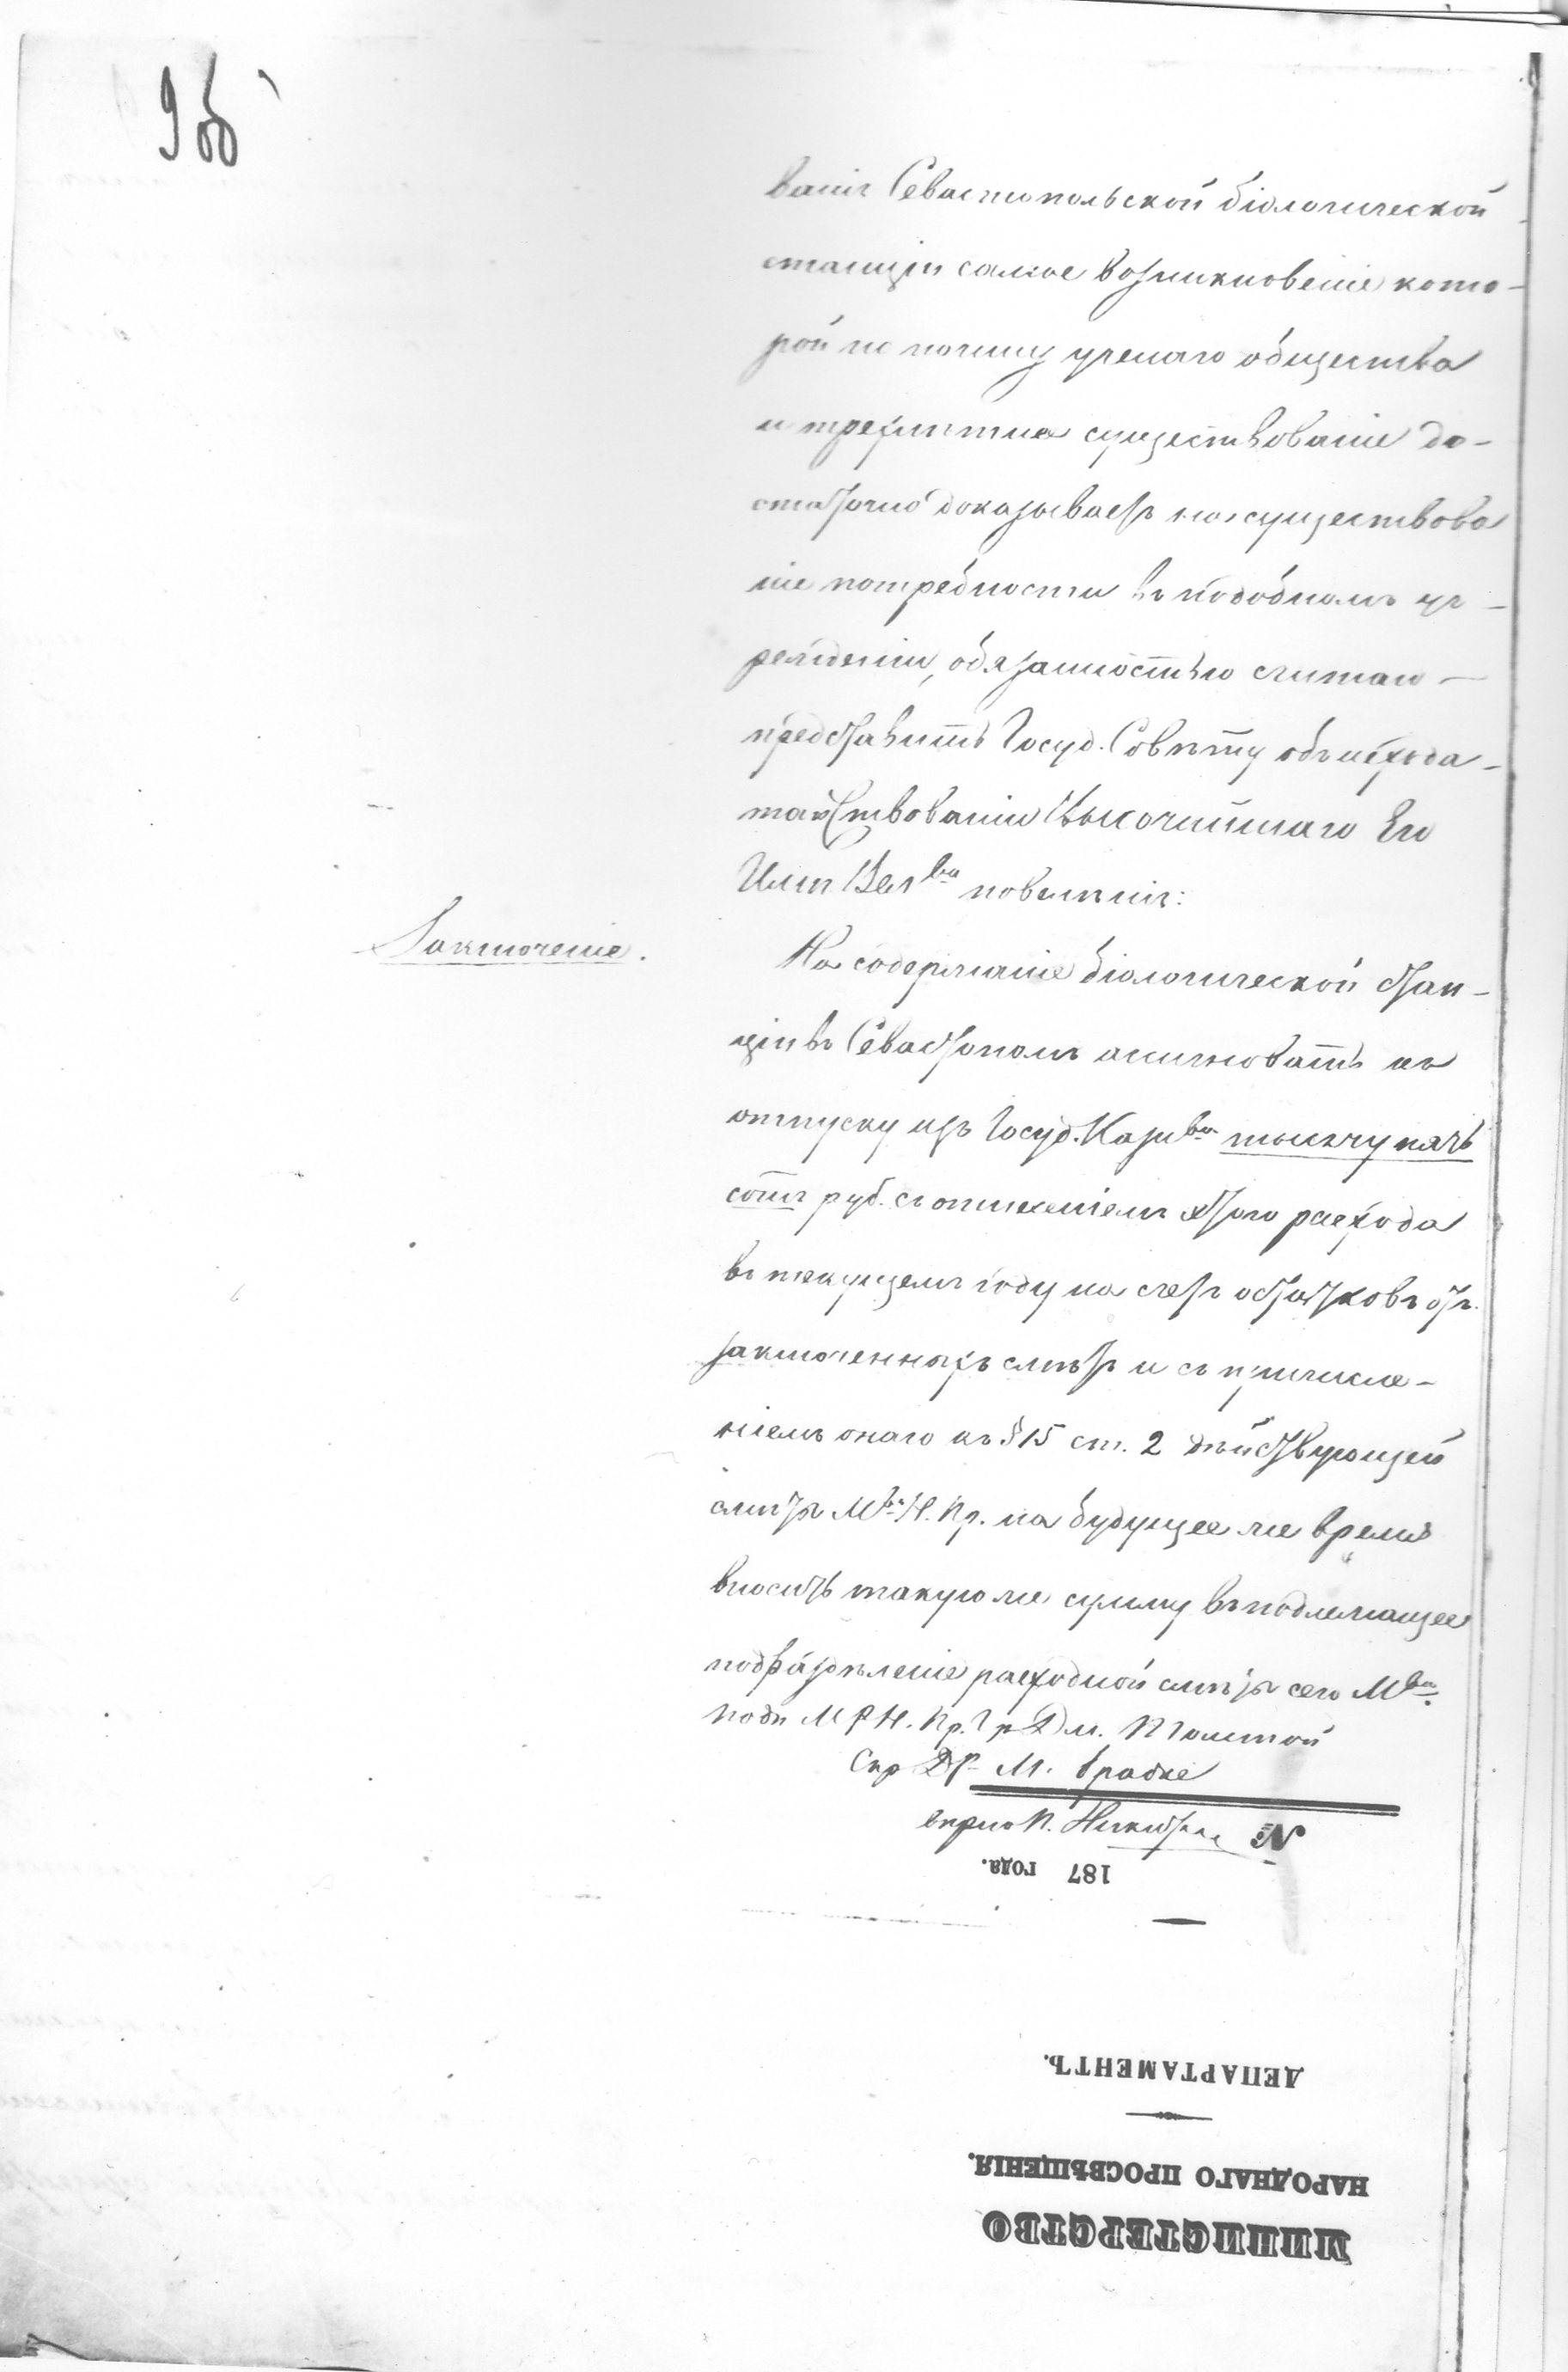 9 об
ванія Севастопольской біологической
станціи самое возникновеніе кото-
рой по почину ученаго общества
и трехлѣтнее существованіе до-
статочно доказываетъ на существова
ніе потребности въ подобномъ уч-
режденіи, обязанностью считаю
представить Госуд. Совѣту объ исхода-
тайствованіи Высочайшаго Его
Имп. Вел ва повелѣнія:
Заключеніе.
На содержаніе біологической стан-
ціи въ Севастополѣ ассигновать къ
отпуску изъ Госуд. Казн ва тысячу пять
сотъ руб. съ отнесеніемъ этого расхода
въ текущемъ году на счетъ остатковъ отъ
заключенныхъ смѣтъ и съ причисле-
ніемъ онаго къ § 15 ст. 2 дѣйствующей
смѣты М ва Н. Пр. на будущее же время
вносить такую же сумму въ подлежащее
подраздѣленіе расходной смѣты сего М ва.
Подп М Р Н. Пр. Гр Дм. Толстой
Скр Др М. Брадке
вѣрно П.
№
187 года.
ДЕПАРТАМЕНТЪ.
НАРОДНАГО ПРОСВѢЩЕНІЯ.
МИНИСТЕРСТВО